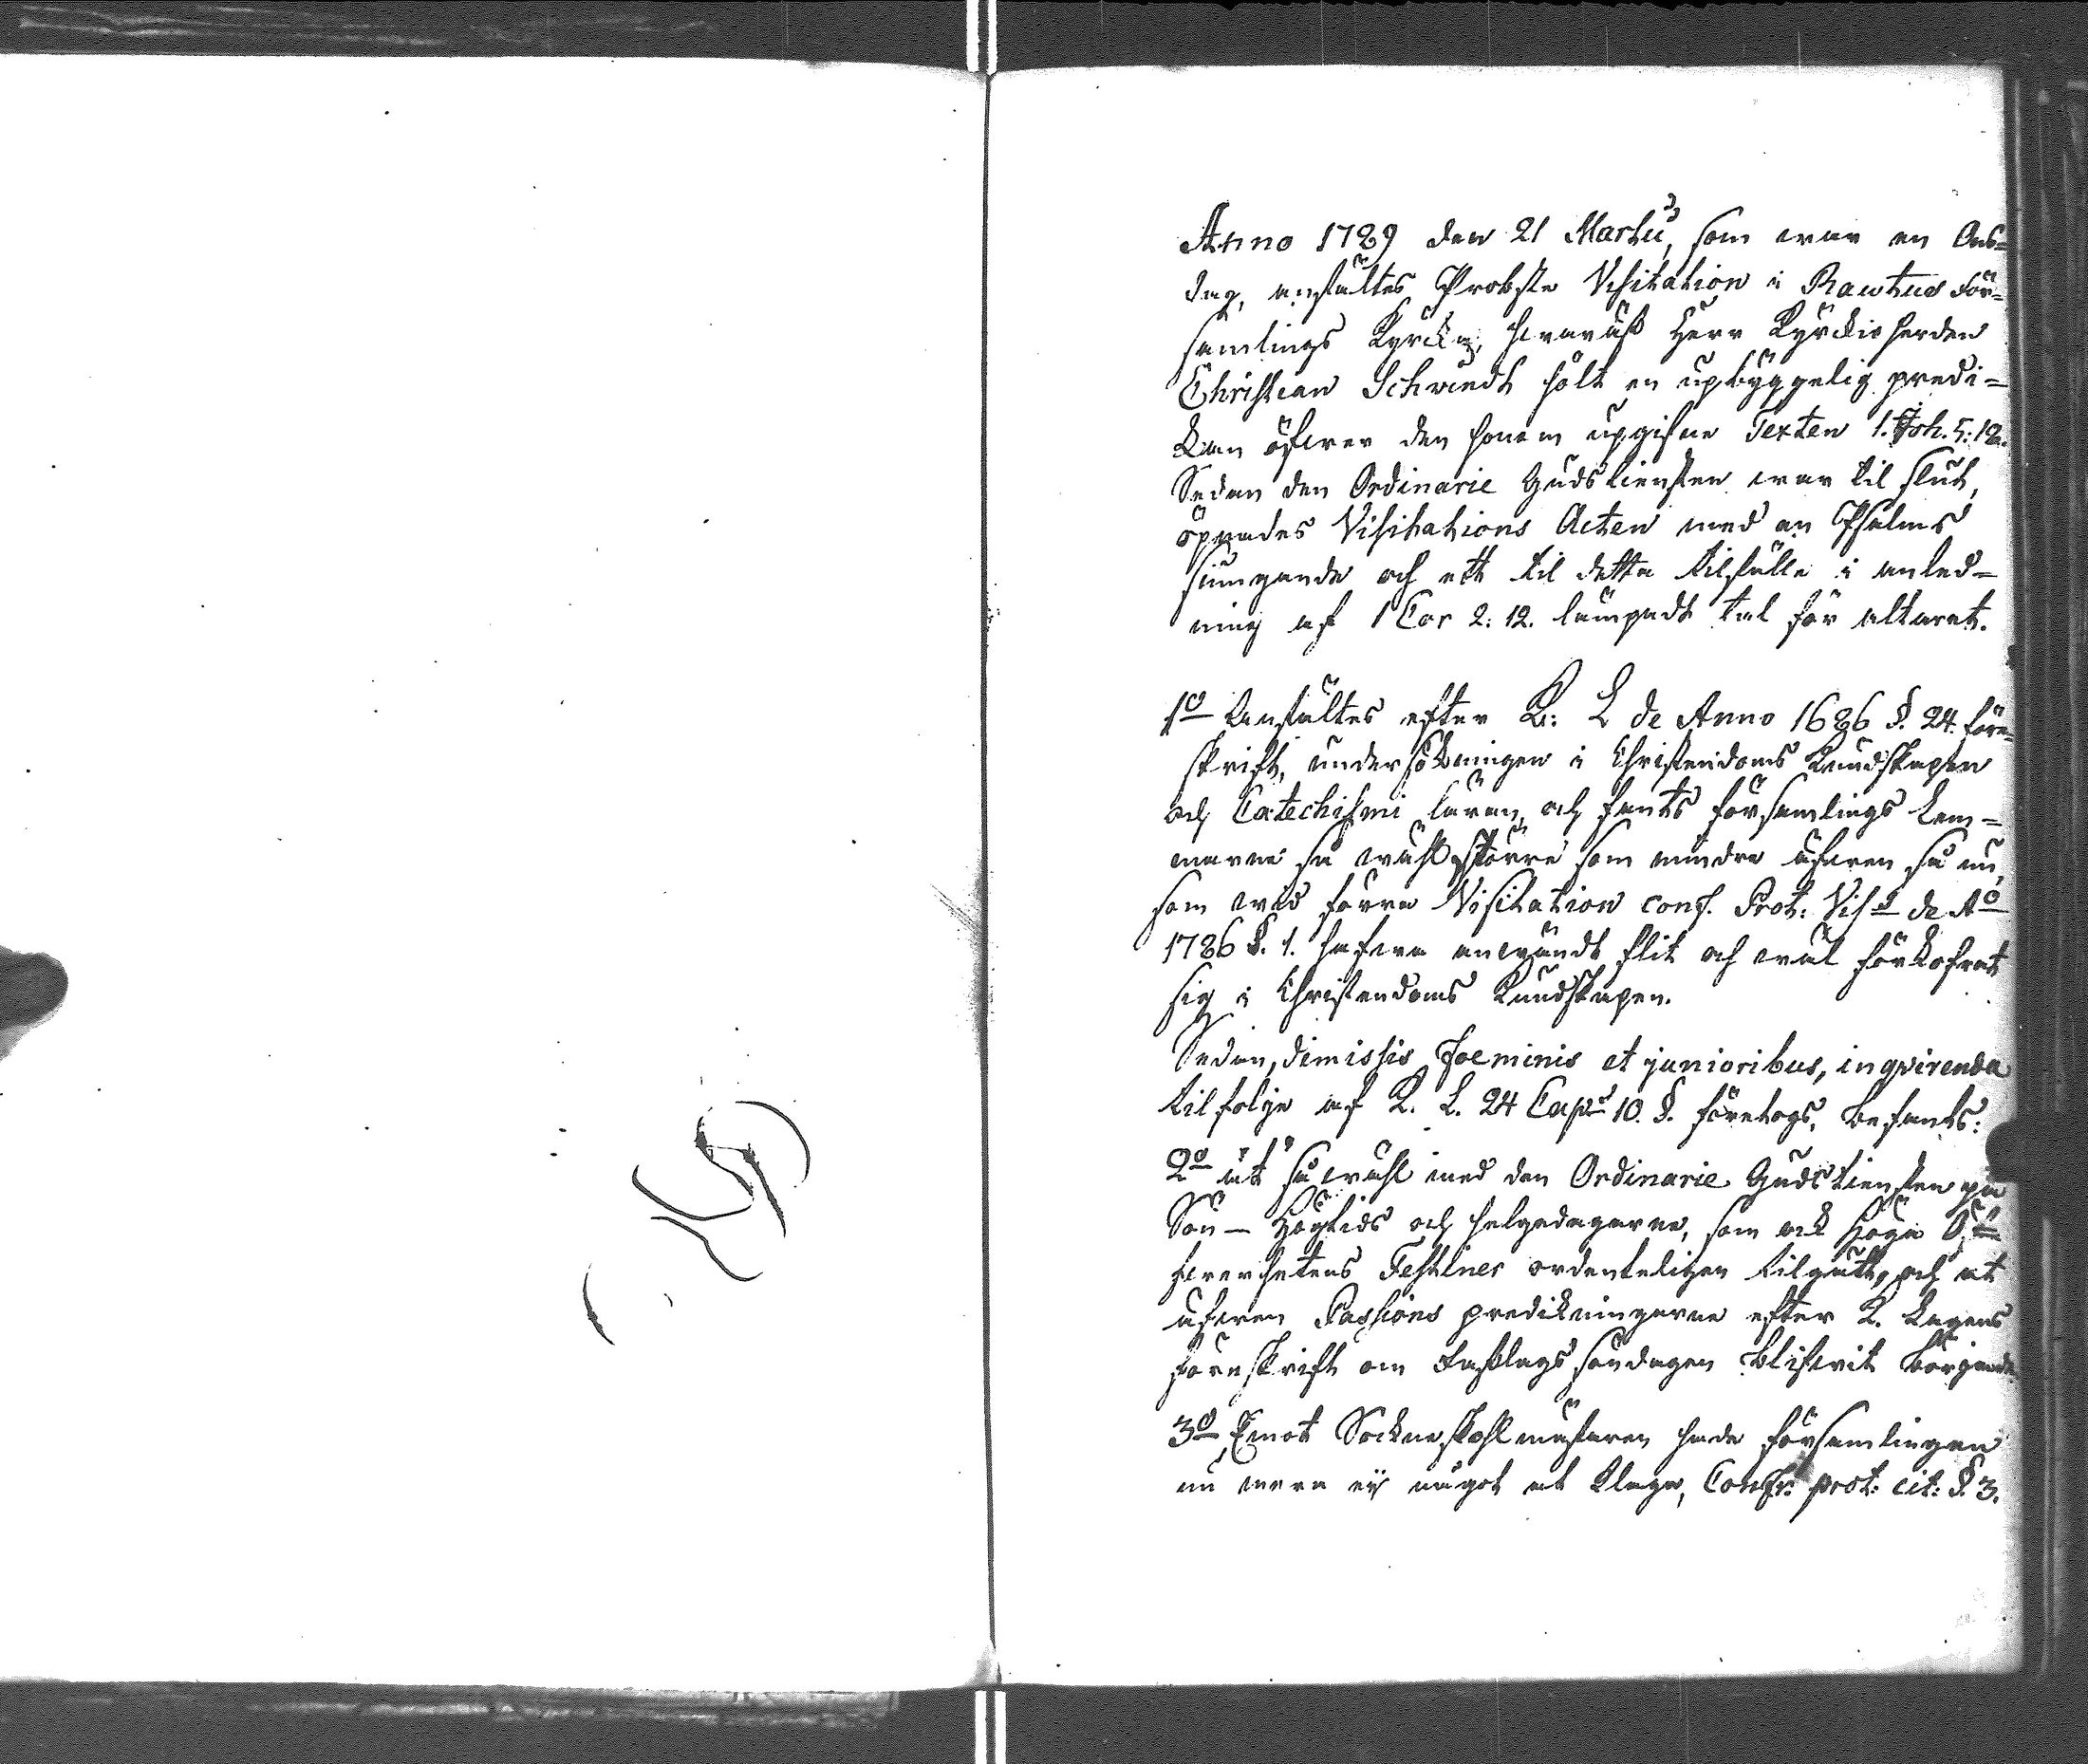 Anno 1789 den 21 Martii, som war en Ons=
dag, anstältes Probste Visitation i Rawtus För=
samlings Kyrcka, hwaräst Herr Kyrckioherden
Christian Schwedt hölt en upbyggelig predi=
kan öfwer den honom upgifne Texten 1. Joh. 5: 12.
Sedan den Ordinarie Gudstiensten war til slut,
öpnades Visitations Acten med en Psalms
siungande och ett til detta tilfälle i anled=
ning af 1 Cor 2: 12. lämpadt tal för altaret.
1o Anstältes efter K: L de Anno 1686 §. 24. före=
skrift, undersökningen i Christendoms Kundskapen
och Catechismi läran, och fants församlings lem=
marne så wähl större som mindre äfwen så nu,
som wid förra Visitation conf. Prot: Vis:s de Ao
1786 §. 1. hafwa anwändt flit och wäl förkofrat
sig i Christendoms Kundskapen.
Sedan, dimissis foeminis et junioribus, inqvirenda
tilfölje af K. L. 24 Cap: 10. §. företogs, befants:
2o at så wähl med den Ordinarie Gudstiensten på
Sön- Högtids och helgedagarne, som ock höga Öf=
werhetens Festliner ordenteligen tilgått, och at
äfwen Passions predikningarne efter K. Lagens
föreskrift om Fastlags söndagen blifwit börjande.
3o Emot Sockneskohlmästaren hade församlingen
nu mera ej något at klaga, Confr. prot: cit: §. 3.